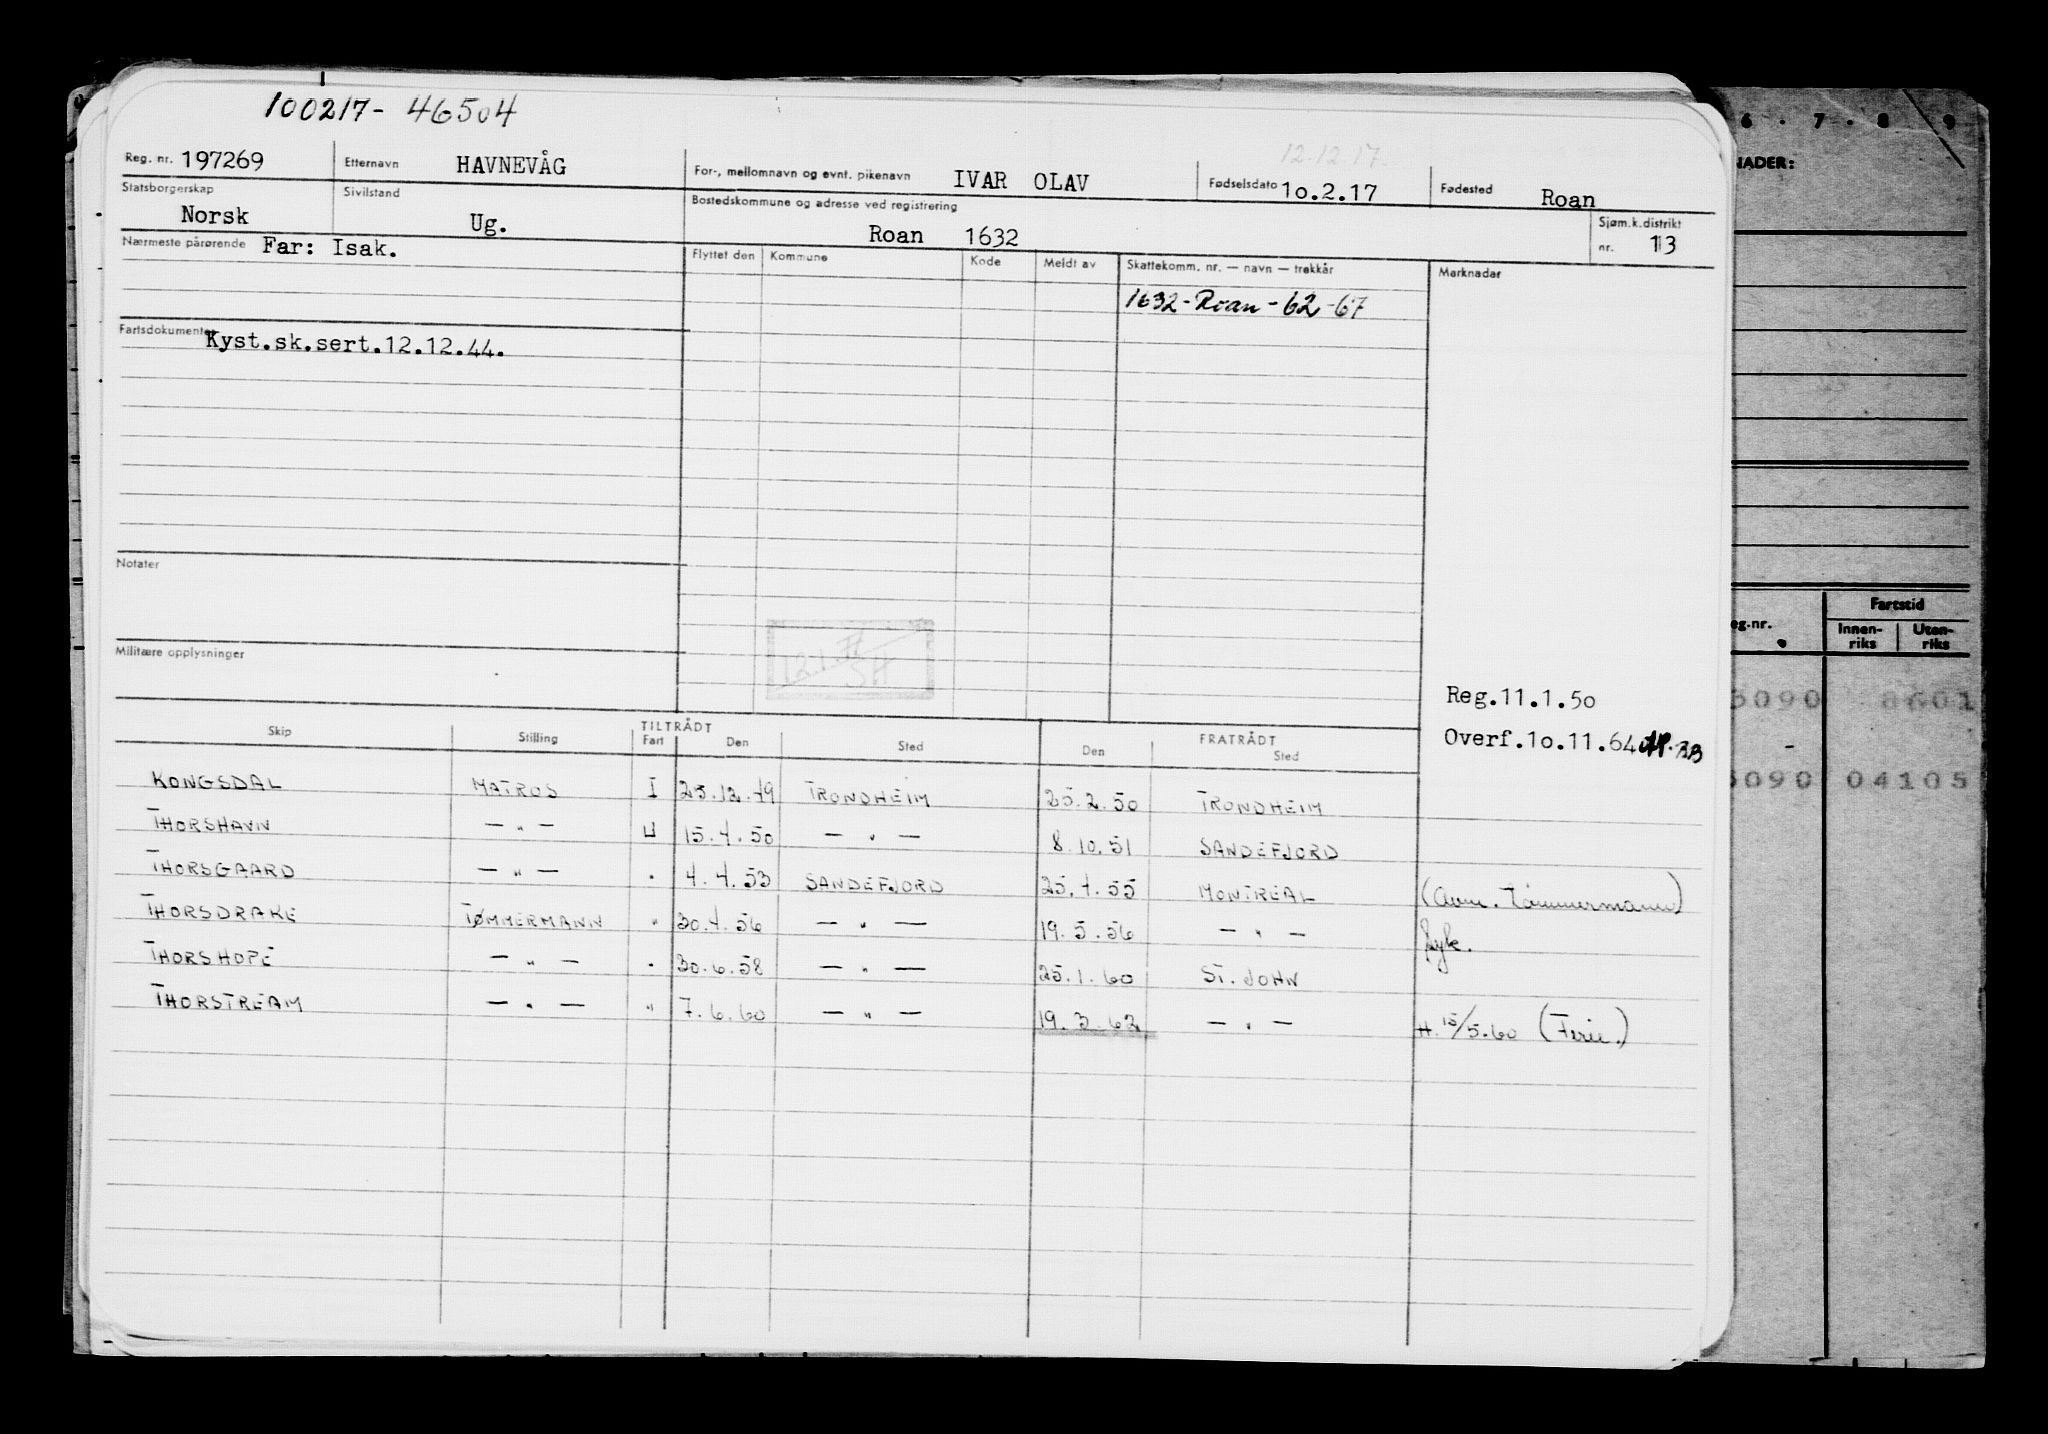 100217- 46504
Reg. nr. 197269 Etternavn HAVNEVÅG For-, mellomnavn og evnt. pikenavn IVAR OLAV Fødselsdato 10.2.17 Fødested Roan
12.12.17.
Statsborgerskap Norsk Sivilstand Ug. Bostedskommune og adresse ved registrering Roan 1632 Sjøm.k.distrikt nr. 13
Nærmeste pårørende Far: Isak. Flyttet den Kommune Kode Meldt av Skattekomm. nr. — navn — trekkår Merknader
1632-Roan-62-67
Fartsdokumenter Kyst.sk.sert.12.12.44.
Notater
Militære opplysninger
Reg.11.1.50
Overf.10.11.64
TILTRÅDT FRATRÅDT
Skip Stilling Fart Den Sted Den Sted
KONGSDAL MATROS I 23.12.49 TRONDHEIM 25.2.50 TRONDHEIM
THORSHAVN — " — U 15.4.50 — " — 8.10.51 SANDEFJORD
THORSGAARD — " — " 4.4.53 SANDEFJORD 25.4.55 MONTREAL (Avm. Tømmermann)
THORSDRAKE TØMMERMANN " 30.4.56 — " — 19.5.56 — " — Syk.
THORSHOPE — " — " 30.6.58 — " — 25.1.60 ST. JOHN
THORSTREAM — " — " 7.6.60 — " — 19.3.62 — " — H. 15/5.60 (Ferie.)
6 . 7 . 8 9
NADER:
eg.nr. Fartstid
Innen-riks Uten-riks
5090 8601
-
5090 04105